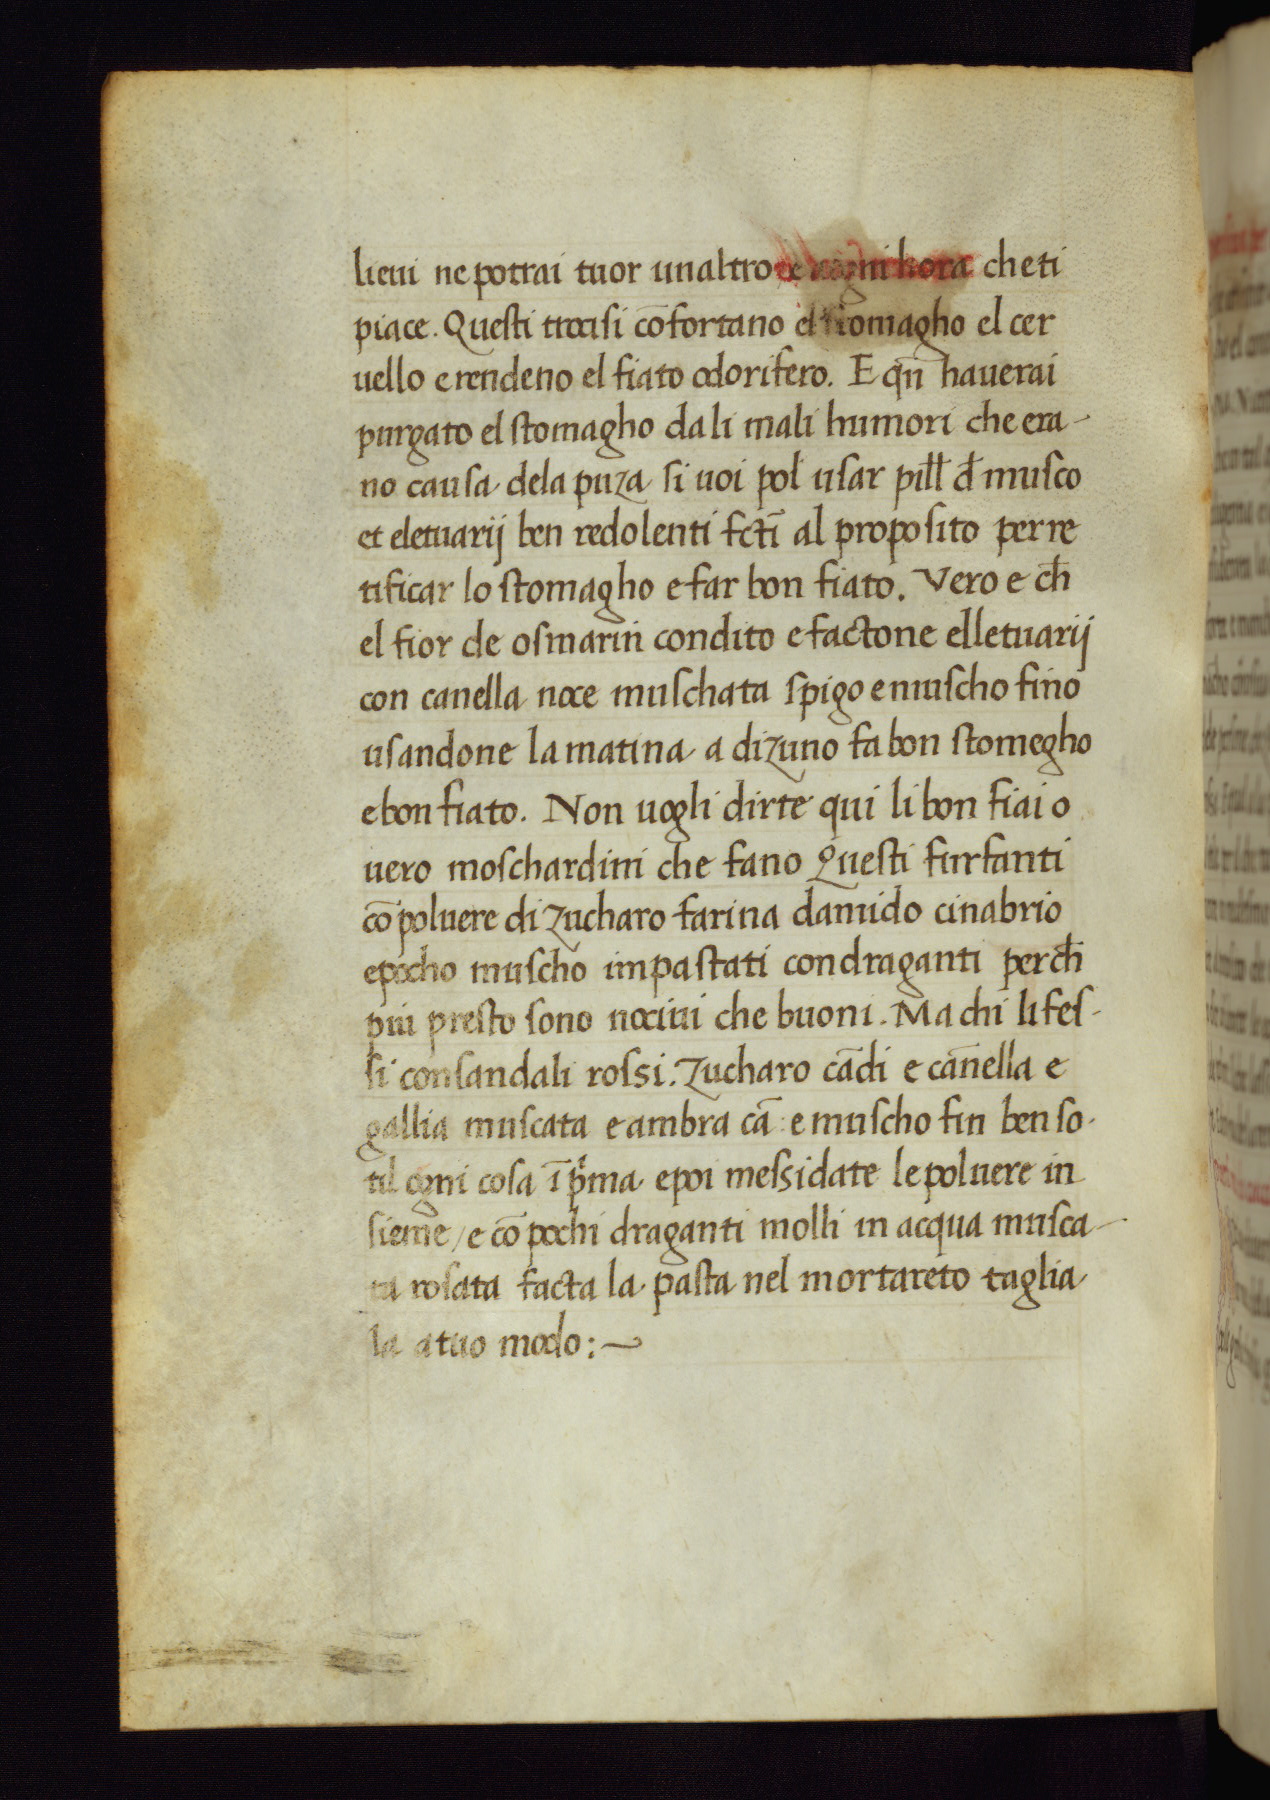 lieui ne potrai tuor unaltro e ogni hora che ti
piace. Questi trocisi cōfortano el stomagho el cer
uello e rendeno el fiato odorifero. E qn̄ hauerai
purgato el stomagho da li mali humori che era-
no causa dela puza si uoi pol usar pill̄ đ musco
et eletuarij ben redolenti fctī al proposito per re
tificar lo stomagho e far bon fiato. Vero e ch̄
el fior de osmarin condito e factone elletuarij
con canella noce muschata spigo e muscho fino
usandone la matina a dizuno fa bon stomegho
e bon fiato. Non uogli dirte qui li bon fiai o
uero moschardini che fano Questi furfanti
cō poluere di zucharo farina damido cinabrio
e pocho muscho impastati con draganti perch̄
piu presto sono nociui che buoni. Ma chi li fes-
si con sandali rossi. Zucharo cādi e cānella e
gallia muscata e ambra cā: e muscho fin ben so-
til ogni cosa ī pͥma e poi messidate le poluere in
sieme / e cō pochi draganti molli in acqua musca-
ta rosata facta la pasta nel mortareto taglia
la a tuo modo:~